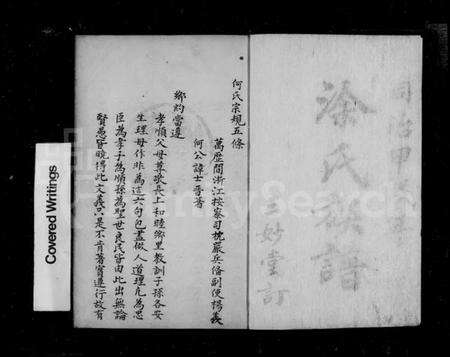 何氏宗規五條
萬歷間浙江按察司杭嚴兵備副使楊義
何公諱士晋著
鄉約當遵
孝順父母尊敬長上和睦鄉里教訓子孫各安
生理毋作非為這六句包盡做人道理凡為忠
臣為孝子為順孫為聖世良民皆由此出無論
賢愚皆曉得此文義只是不肯著實遵行故有
同治甲
涂氏族譜
妙堂訂
Covered Writings
FamilySearch